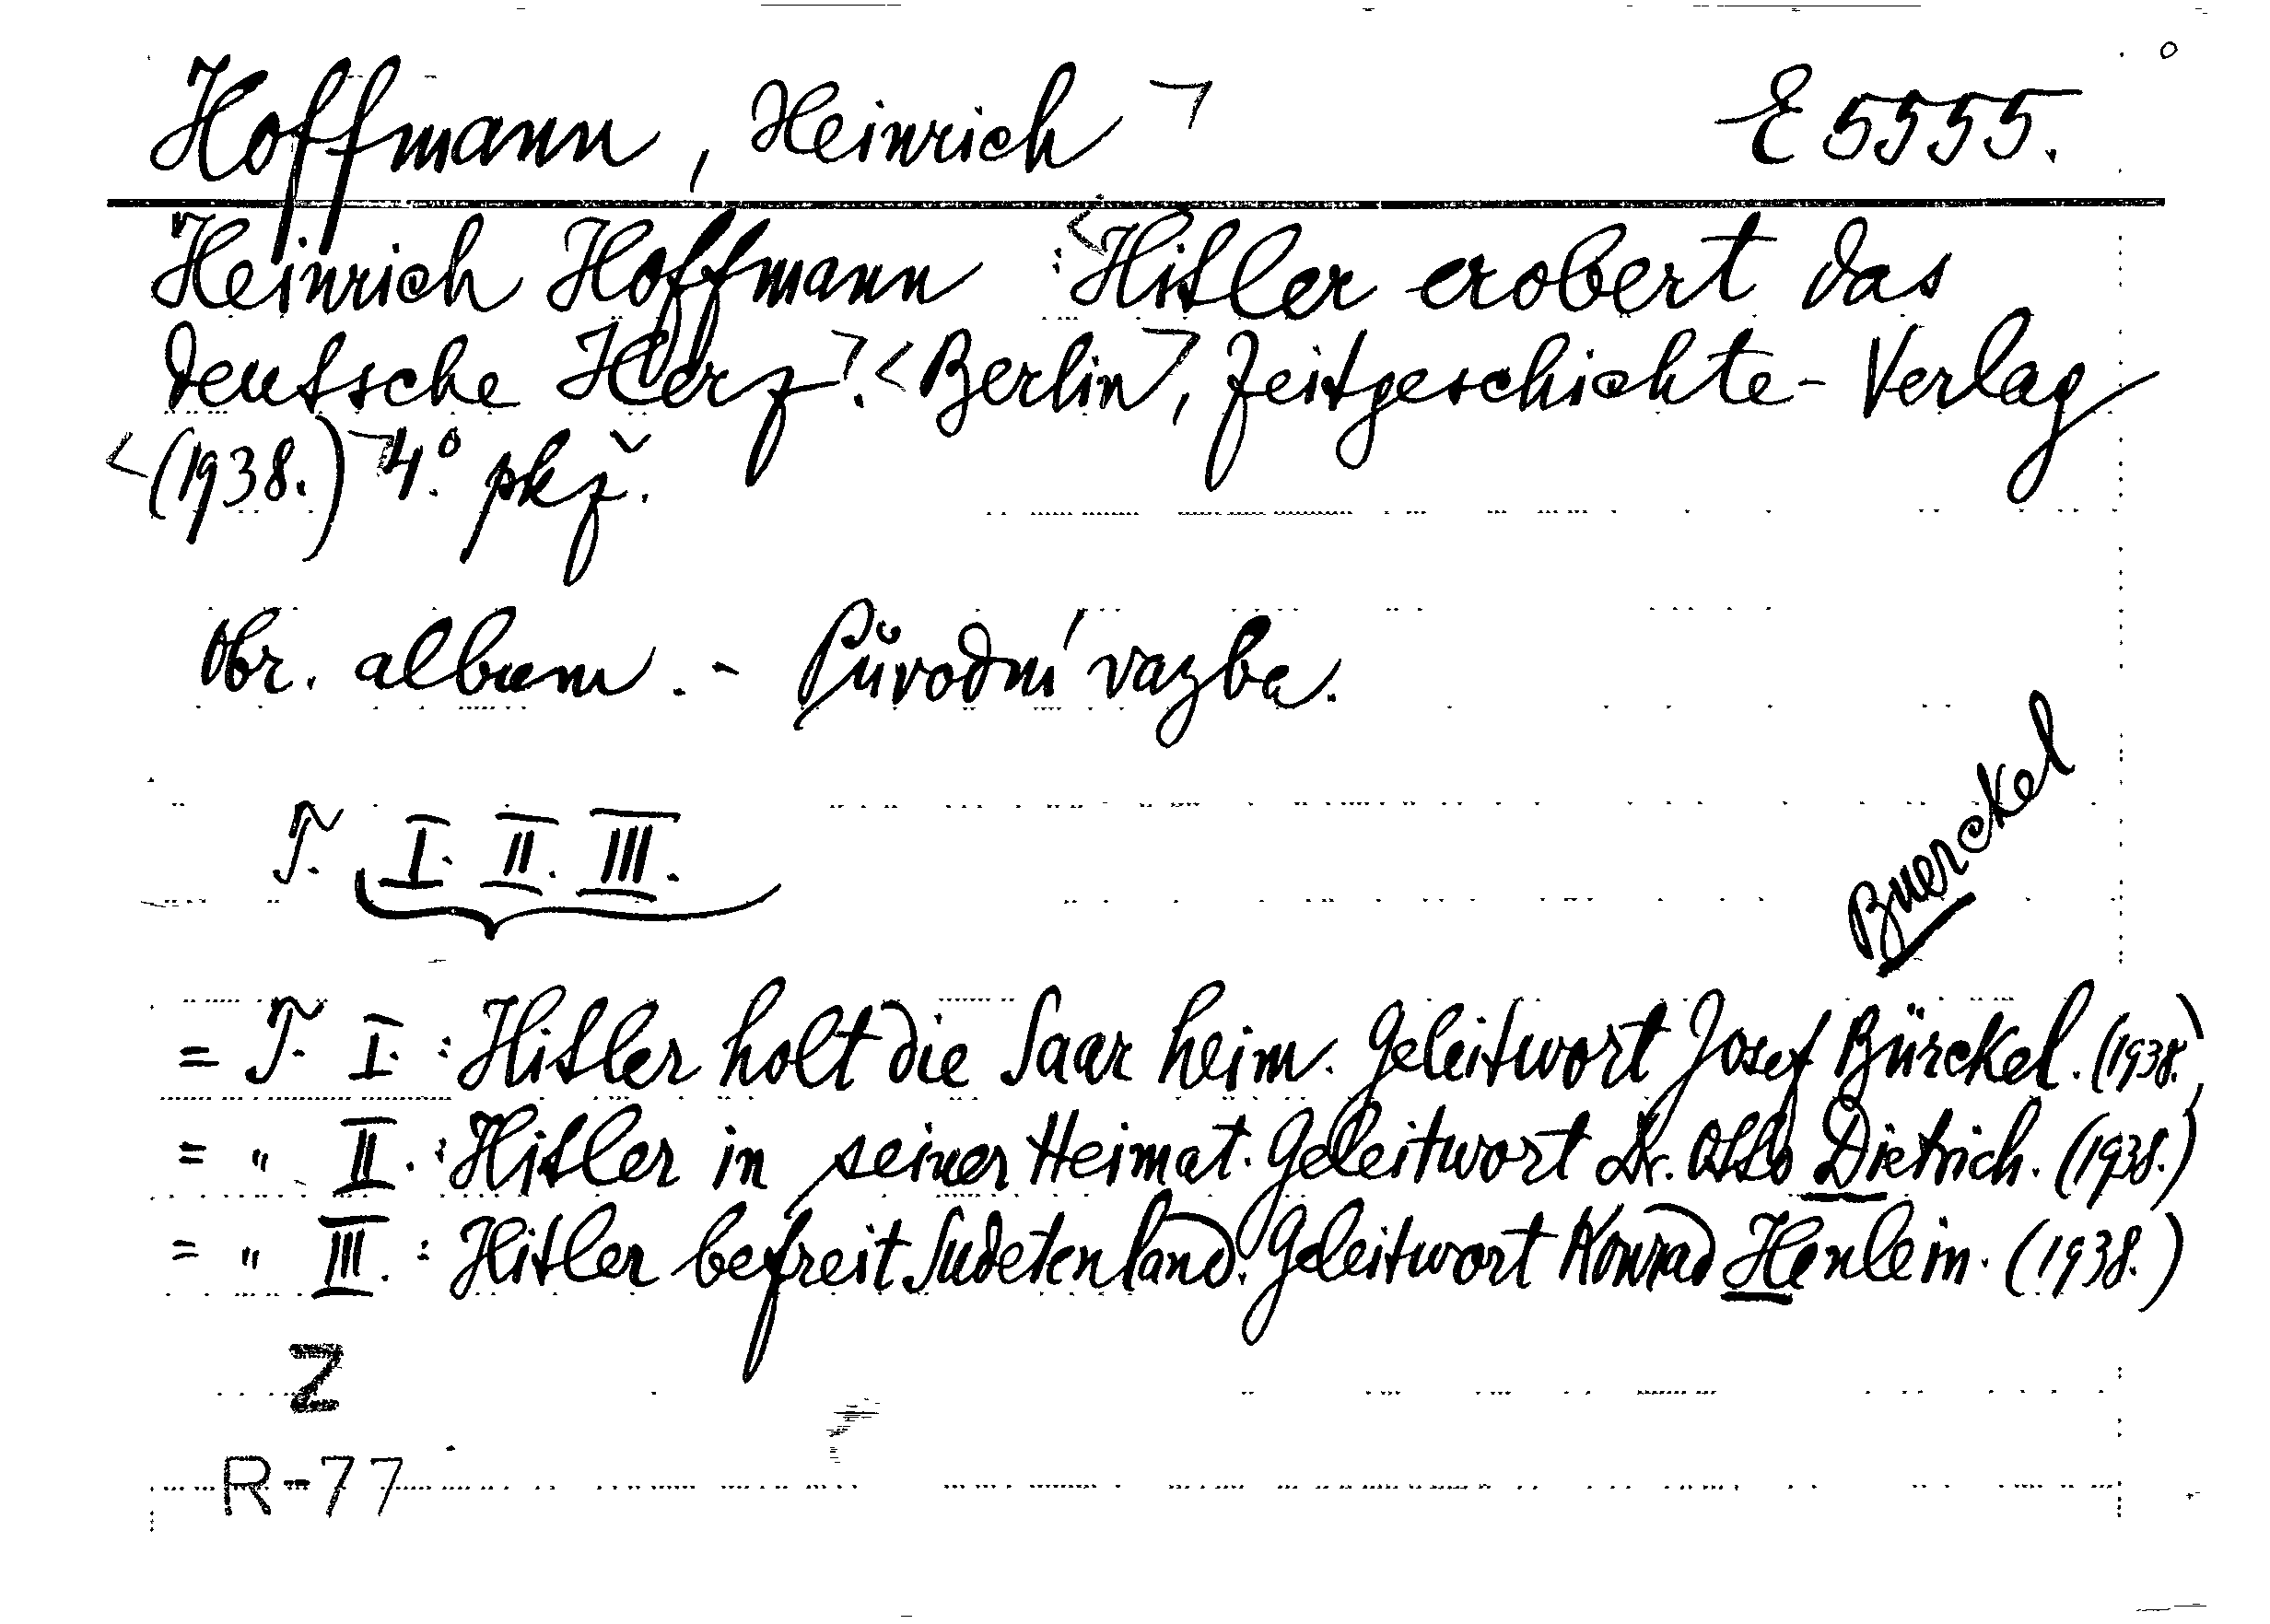 Hoffmann, Heinrich ¬ E 5555.
Heinrich Hoffmann : <Hitler erobert das
deutsche Herz¬. <Berlin¬, Zeitgeschichte-Verlag
<(1938.)¬ 4.° pkž.
Obr. album. - Původní vazba.
Buerckel
T. I. II. III.
= T. I. : Hitler holt die Saar heim. Geleitwort Josef Bürckel. (1938.)
= " II. : Hitler in seiner Heimat. Geleitwort Dr. Otto Dietrich. (1938.)
= " III. : Hitler befreit Sudetenland. Geleitwort Konrad Henlein. (1938.)
Z
R-77